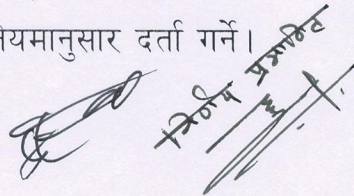 नियमानुसार दर्ता गर्ने।
निर्णय प्रमाणित